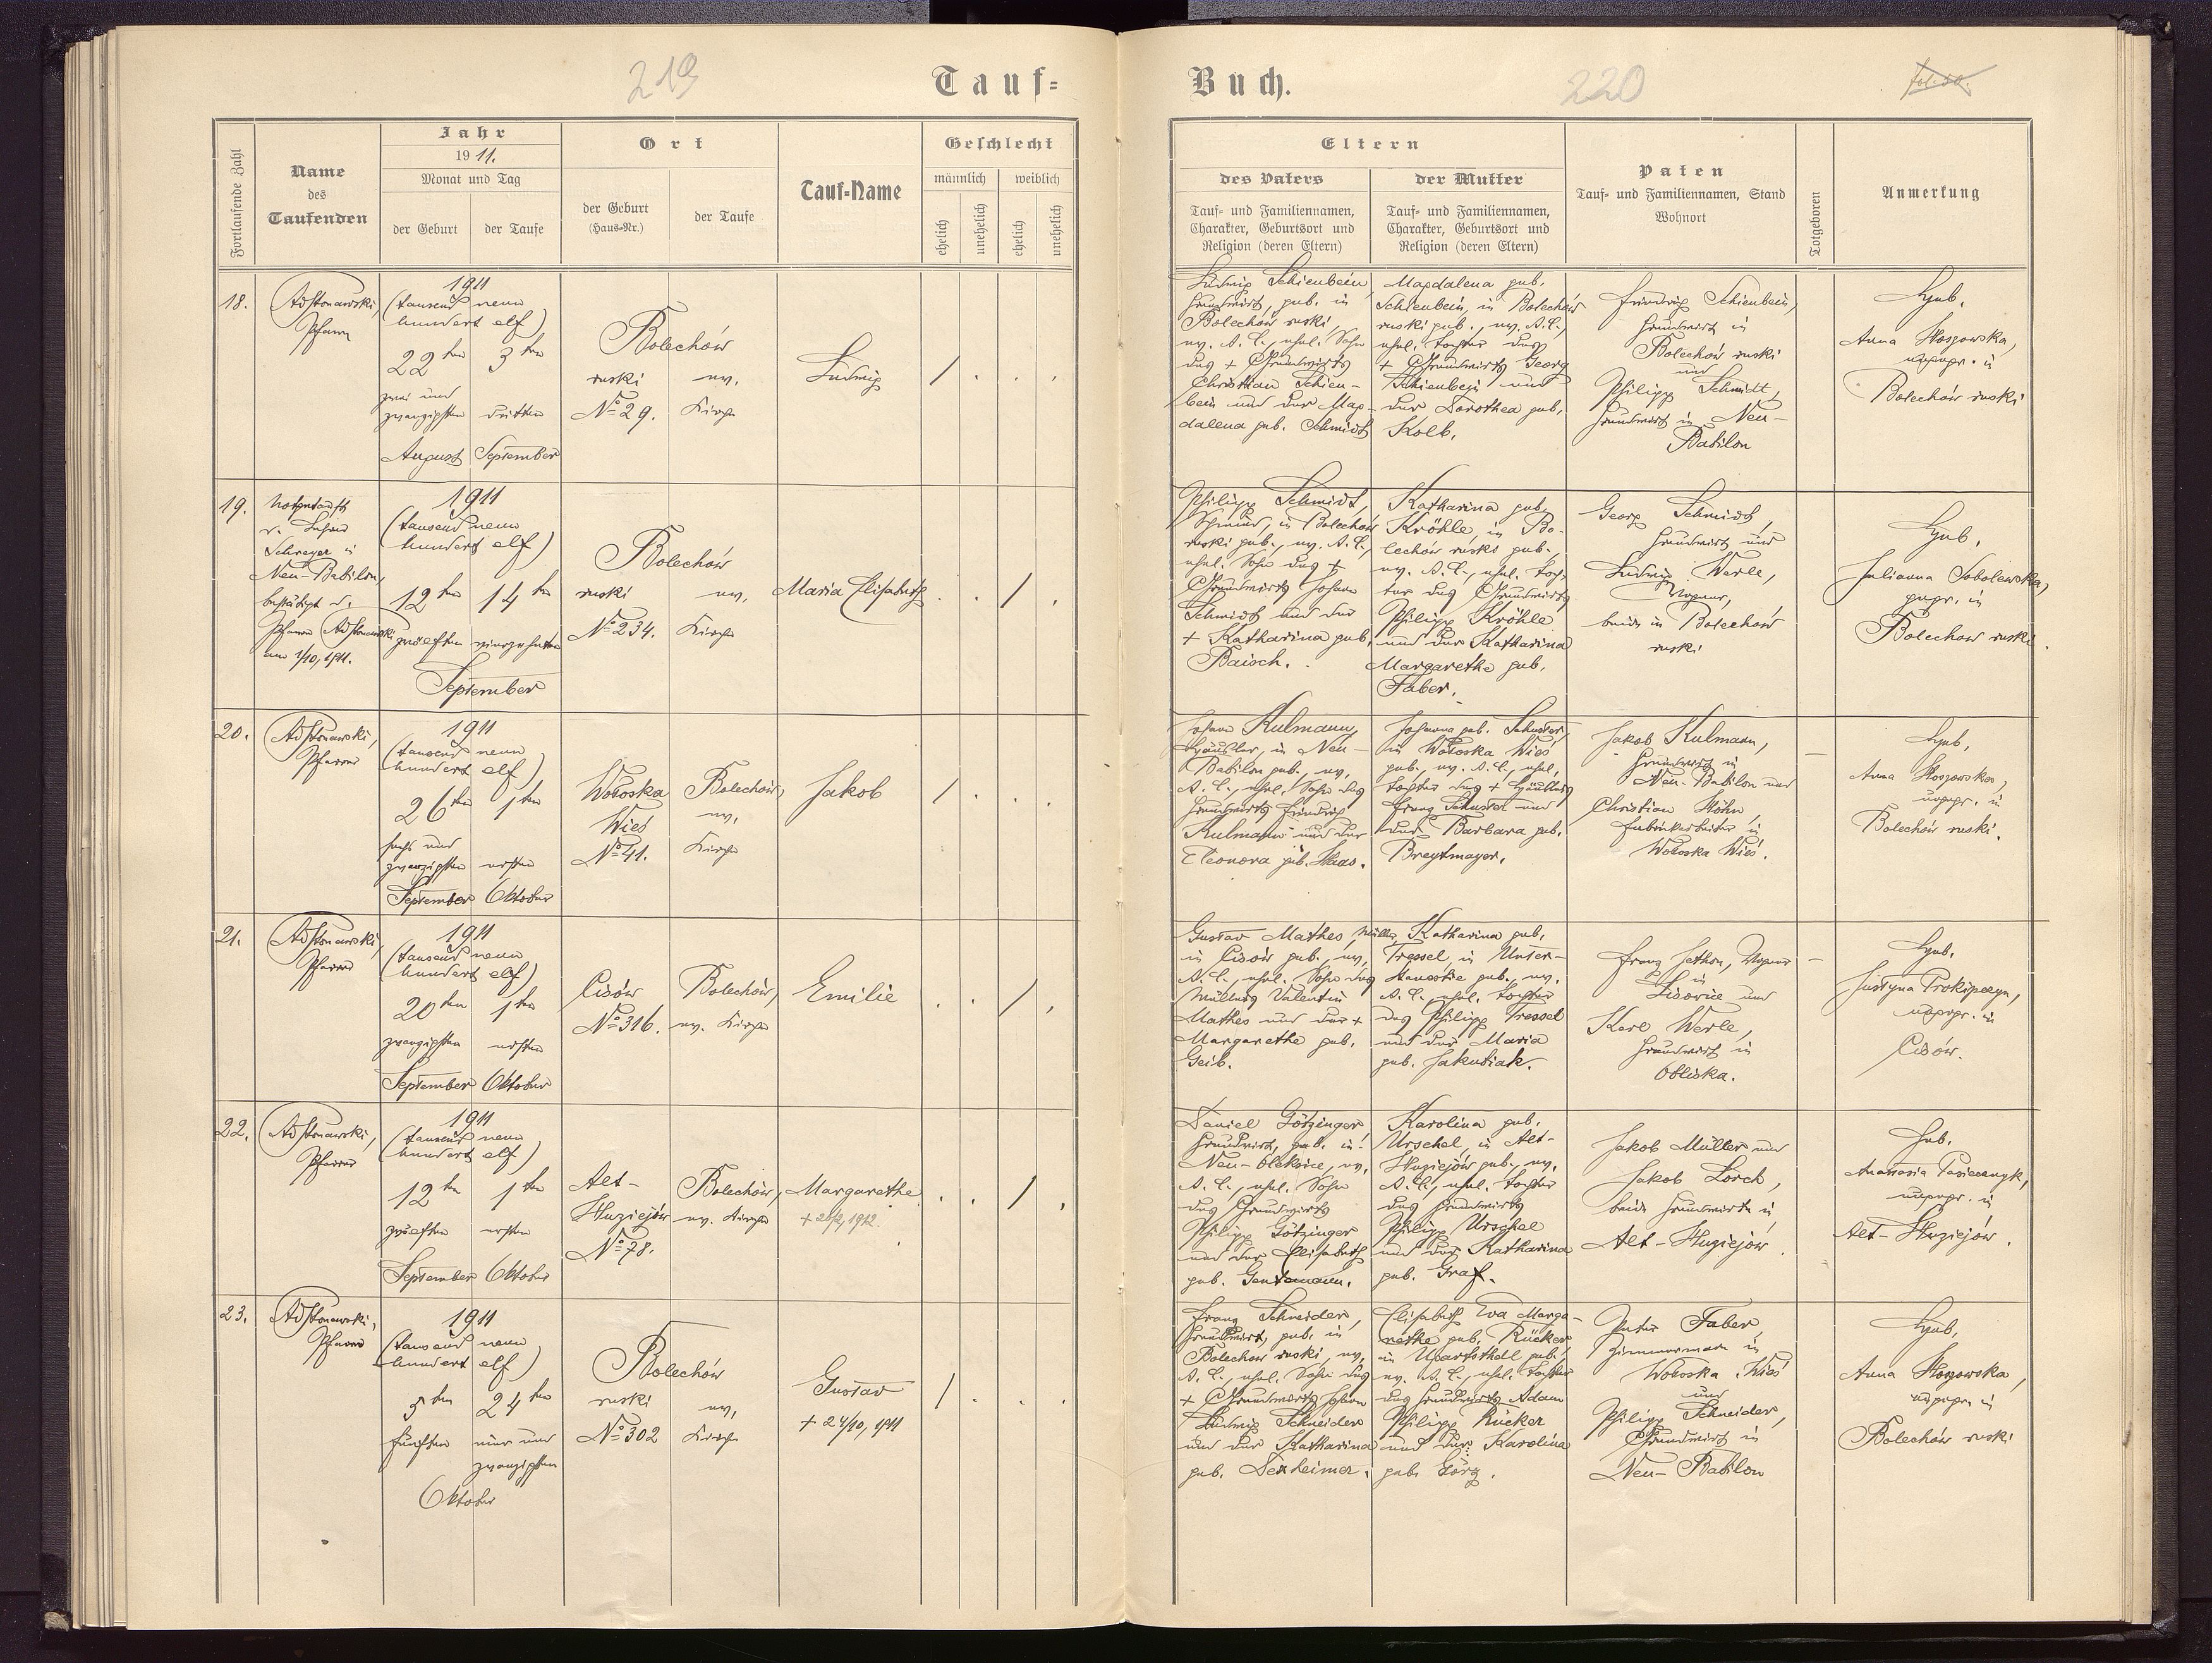 219
Tauf=
Buch.
220
Fortlaufende Zahl
Name
des
Taufenden
Jahr
1911.
Monat und Tag
der Geburt
der Taufe
Ort
der Geburt
(Haus=Nr.)
der Taufe
Tauf=Name
Geschlecht
männlich
weiblich
ehelich
unehelich
ehelich
unehelich
Eltern
des Vaters
Tauf= und Familiennamen,
Charakter, Geburtsort und
Religion (deren Eltern)
der Mutter
Tauf= und Familiennamen,
Charakter, Geburtsort und
Religion (deren Eltern)
Paten
Tauf= und Familiennamen, Stand
Wohnort
Totgeboren
Anmerkung
18.
Pfarrer
1911
(tausend neun
hundert elf)
22ten 3ten
zwei und
zwanzigsten dritten
August September
Bolechów
ruski
No 29.
ev.
Kirche
Ludwig
/ . . .
Ludwig Schienbein
Grundwirt, geb. in
Bolechów ruski,
ev. A. C., ehel. Sohn
des + Grundwirts
Christian Schien-
bein und der Mag-
dalena geb. Schmidt
Magdalena geb.
Schienbein, in Bolechów
ruski geb., ev. A. C.,
ehel. Tochter des
+ Grundwirts Georg
Schienbein und
der Dorothea geb.
Kolb.
Friedrich Schienbein,
Grundwirt in
Bolechów ruski
und
Philipp Schmidt,
Grundwirt in Neu-
Babilon
Heb.
Anna Hoszowska,
in
Bolechów ruski
19.
Notgetauft
v. Lehrer
Schreyer in
Neu-Babilon,
bestätigt v.
Pfarrer
am 1/10, 1911.
1911
(tausend neun
hundert elf)
12ten 14ten
zwölften vierzehnten
September
Bolechów
ruski
No 234.
ev.
Kirche
Maria Elisabeth
. . / .
Philipp Schmidt,
Schmied, in Bolechów
ruski geb., ev. A. C.,
ehel. Sohn des +
Grundwirts Johann
Schmidt und der
+ Katharina geb.
Baisch.
Katharina geb.
Kröhle, in Bo-
lechów ruski geb.
ev. A. C., ehel. Toch-
ter des Grundwirts
Philipp Kröhle
und der Katharina
Margarethe geb.
Faber.
Georg Schmidt,
Grundwirt und
Ludwig Werle,
Wagner,
beide in Bolechów
ruski
Heb.
Julianna Sobolewska,
gepr. in
Bolechów ruski.
20.
Pfarrer
1911
(tausend neun
hundert elf)
26ten 1ten
sechs und
zwanzigsten ersten
September Oktober
Wołoska
Wieś
No 41.
Bolechów,
ev.
Kirche
Jakob
/ . . .
Johann Kulmann,
Häusler, in Neu-
Babilon geb., ev.
A. C., ehel. Sohn des
Grundwirts Friedrich
Kulmann und der
Eleonora geb. Haas.
Johanna geb. Schuster,
in Wołoska Wieś
geb., ev. A. C., ehel.
Tochter des + Häuslers
Franz Schuster und
der Barbara geb.
Breytmayer.
Jakob Kulmann,
Grundwirt in
Neu-Babilon und
Christian Höhn,
Fabrikarbeiter in
Wołoska Wieś.
—
Heb.
Anna Hoszowska,
in
Bolechów ruski.
21.
Pfarrer
1911
(tausend neun
hundert elf)
20ten 1ten
zwanzigsten ersten
September Oktober
Cisów
No 316.
Bolechów,
ev. Kirche
Emilie
. . / .
Gustav Mathes, Müller,
in Cisów geb., ev.
A. C., ehel. Sohn des
Müllers Valentin
Mathes und der +
Margarethe geb.
Geib.
Katharina geb.
Tressel, in Unter-
geb., ev.
A. C., ehel. Tochter
des Philipp Tressel
und der Maria
geb. Jakubiak.
Franz Wagner
in
und
Karl Werle,
Grundwirt in
Obliska.
—
Heb.
Justyna Prokipczyn,
in
Cisów.
22.
Pfarrer
1911
(tausend neun
hundert elf)
12ten 1ten
zwölften ersten
September Oktober
Alt-
Huziejów
No 78.
Bolechów,
ev. Kirche
Margarethe
. . / .
Daniel Götzinger
Grundwirt, geb. in
Neu- ev.
A. C., ehel. Sohn
des Grundwirts
Philipp Götzinger
und der Elisabeth
geb. Gentemann.
Karolina geb.
Urschel, in Alt-
Huziejów geb., ev.
A. C., ehel. Tochter
des Grundwirts
Philipp Urschel
und der Katharina
geb. Graf.
Jakob Müller und
Jakob Lorch,
beide Grundwirte in
Alt-Huziejów.
Heb.
in
Alt-Huziejów.
23.
Pfarrer
1911
(tausend neun
hundert elf)
5ten 24ten
fünften vier und
zwanzigsten
Oktober
Bolechów
ruski
No 302
ev.
Kirche
Gustav
+ 24/10, 1911
/ . . .
Franz Schneider,
Grundwirt, geb. in
Bolechów ruski, ev.
A. C., ehel. Sohn des
+ Grundwirts Johann
Ludwig Schneider
und der Katharina
geb. Dexheimer.
Elisabeth Eva Marga-
rethe geb. Rücker
in Ugartsthal geb.
ev. A. C., ehel. Tochter
des Grundwirts Adam
Philipp Rücker
und der Karolina
geb. Görg.
Peter Faber,
Zimmermann in
Wołoska Wieś
und
Philipp Schneider,
Grundwirt in
Neu-Babilon
Heb.
Anna Hoszowska,
in
Bolechów ruski